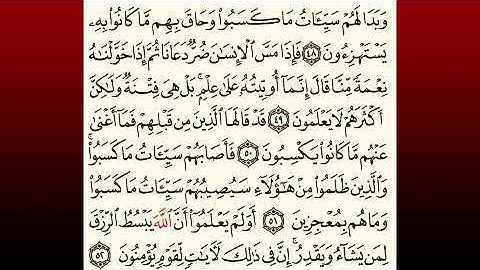 وَبَدَا لَهُمْ سَيِّـَٔاتُ مَا كَسَبُوا۟ وَحَاقَ بِهِم مَّا كَانُوا۟ بِهِۦ
يَسْتَهْزِءُونَ ٤٨ فَإِذَا مَسَّ ٱلْإِنسَـٰنَ ضُرٌّ دَعَانَا ثُمَّ إِذَا خَوَّلْنَـٰهُ
نِعْمَةً مِّنَّا قَالَ إِنَّمَآ أُوتِيتُهُۥ عَلَىٰ عِلْمٍۭ ۚ بَلْ هِىَ فِتْنَةٌ وَلَـٰكِنَّ
أَكْثَرَهُمْ لَا يَعْلَمُونَ ٤٩ قَدْ قَالَهَا ٱلَّذِينَ مِن قَبْلِهِمْ فَمَآ أَغْنَىٰ
عَنْهُم مَّا كَانُوا۟ يَكْسِبُونَ ٥٠ فَأَصَابَهُمْ سَيِّـَٔاتُ مَا كَسَبُوا۟ ۚ
وَٱلَّذِينَ ظَلَمُوا۟ مِنْ هَـٰٓؤُلَآءِ سَيُصِيبُهُمْ سَيِّـَٔاتُ مَا كَسَبُوا۟
وَمَا هُم بِمُعْجِزِينَ ٥١ أَوَلَمْ يَعْلَمُوٓا۟ أَنَّ ٱللَّهَ يَبْسُطُ ٱلرِّزْقَ
لِمَن يَشَآءُ وَيَقْدِرُ ۚ إِنَّ فِى ذَٰلِكَ لَـَٔايَـٰتٍ لِّقَوْمٍ يُؤْمِنُونَ ٥٢